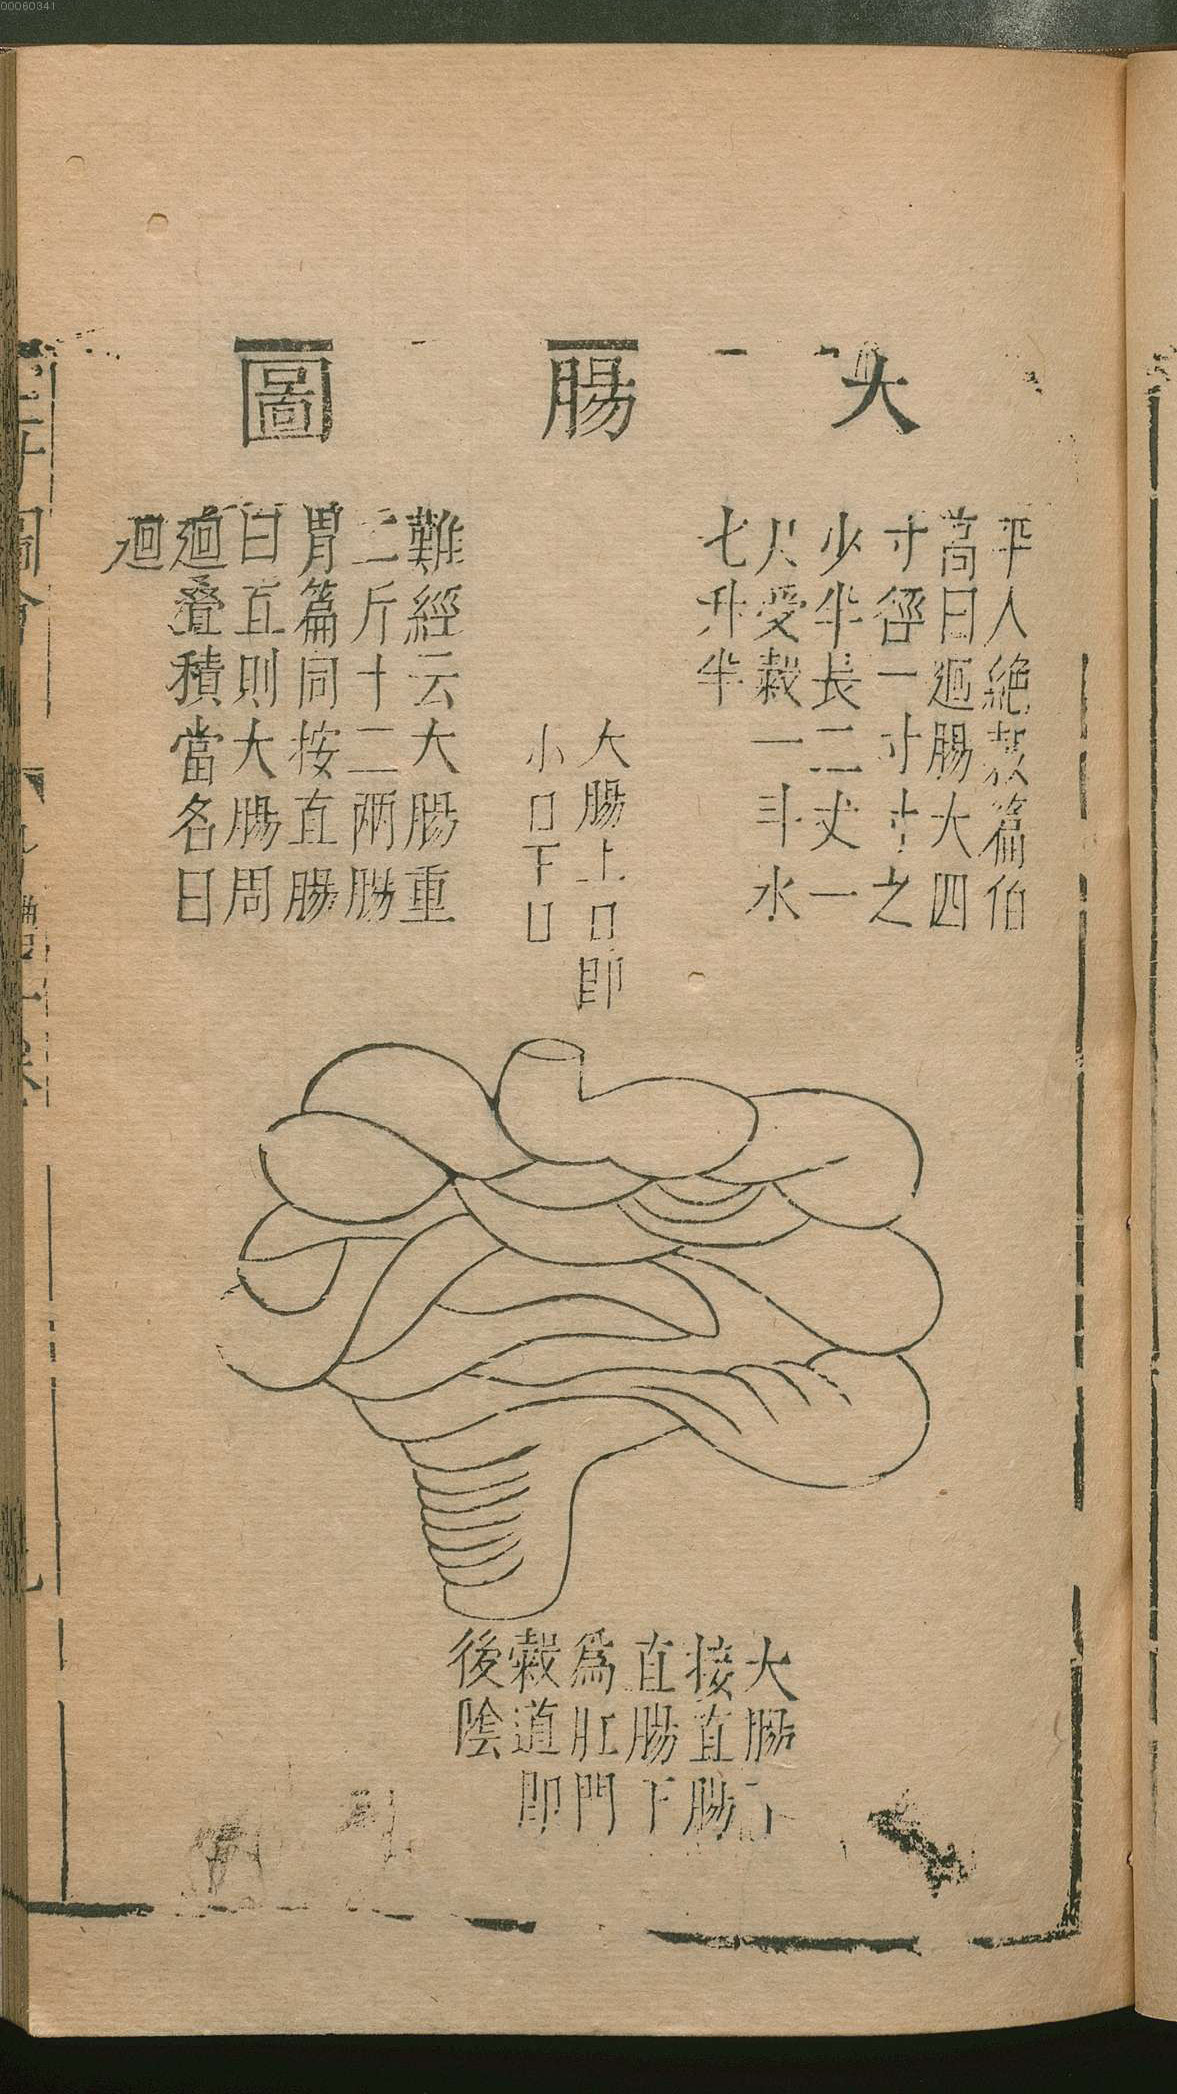 00060341
大腸圖
平人絶榖篇伯
高曰廻腸大四
寸徑一寸寸之
少半長二丈一
尺受榖一斗水
七升半
大腸上口即
小口下口
難經云大腸重
二斤十二兩腸
胃篇同按直腸
曰直則大腸周
廻疊積當名曰
廻
大腸下
接直腸
直腸下
為肛門
榖道即
後陰